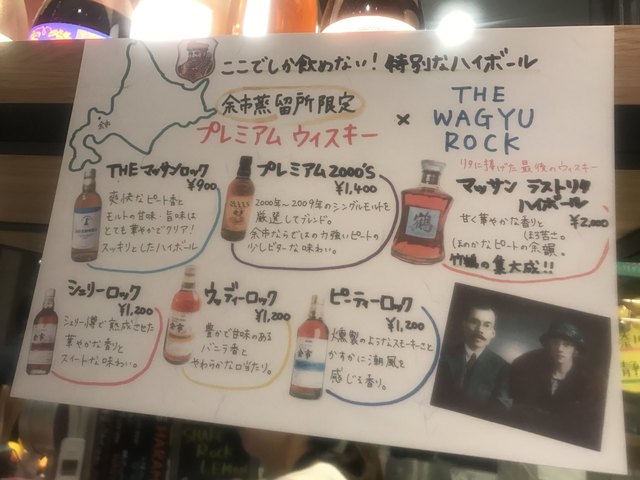 ここでしか飲めない！特別なハイボール
余市蒸留所限定
プレミアム ウィスキー
×
THE
WAGYU
ROCK
余市
THE マッサンロック
¥900
爽快なピート香と
モルトの甘味・旨味は
とても華やかでクリア！
スッキリとしたハイボール
プレミアム2000'S
¥1,400
2000年～2009年のシングルモルトを
厳選してブレンド。
余市ならではの力強いピートの
少しビターな味わい。
リタに捧げた最後のウィスキー
マッサン ラストリタ
ハイボール
¥2,000
甘く華やかな香りと
ほろ苦さ。
ほのかなピートの余韻。
竹鶴の集大成!!
鶴
シェリーロック
¥1,200
シェリー樽で熟成させた
華やかな香りと
スイートな味わい。
余市
ウッディーロック
¥1,200
豊かで甘味のある
バニラ香と
やわらかな口当たり。
余市
ピーティーロック
¥1,200
燻製のようなスモーキーさと
かすかに潮風を
感じる香り。
余市